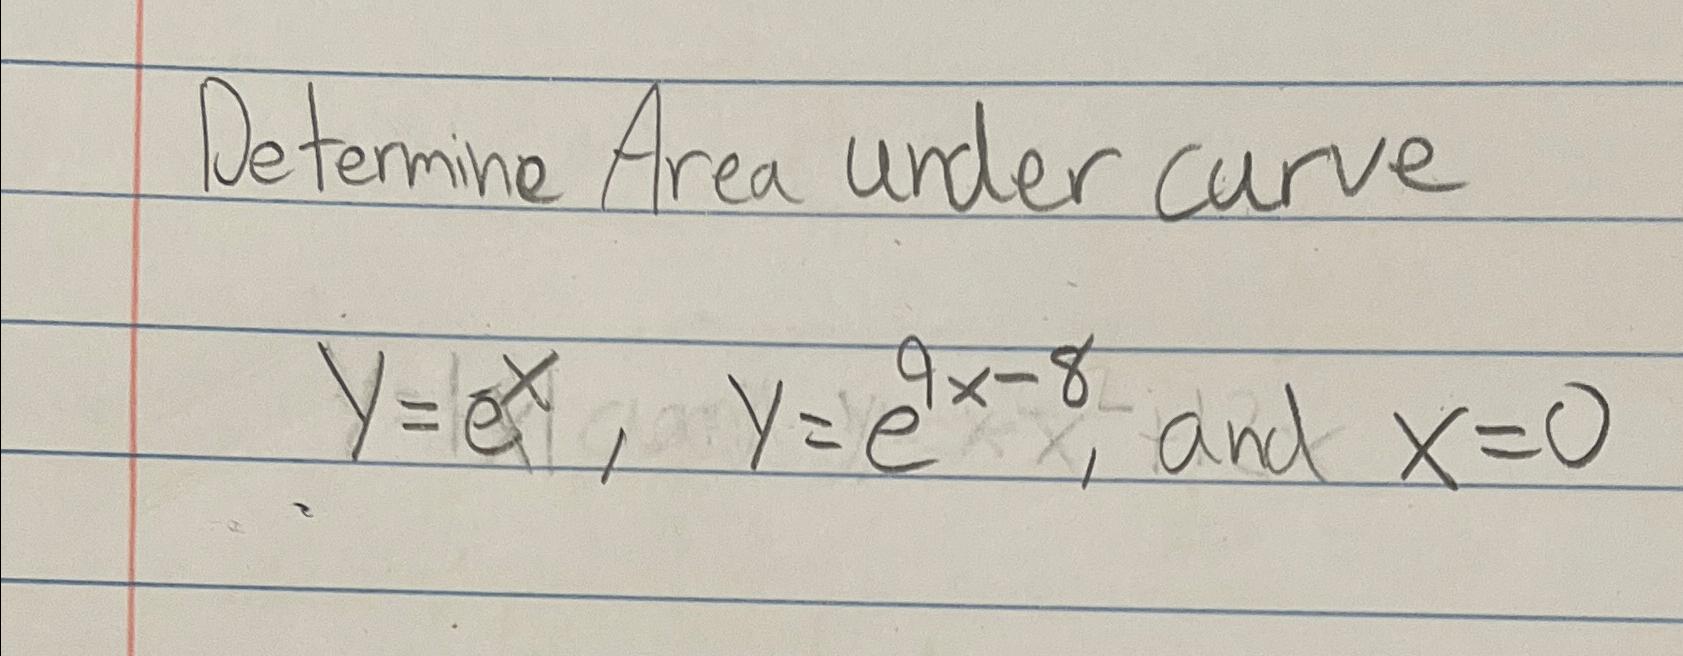 Determine Area under curve
y=e^x, y=e^9x-8, and x=0